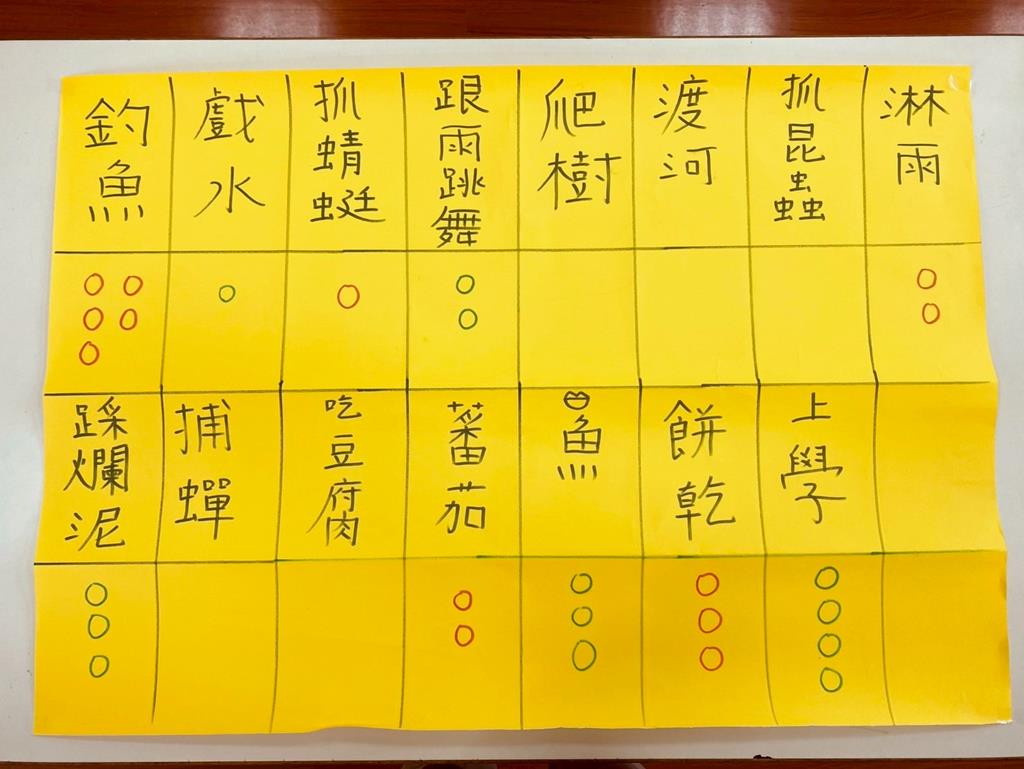 釣魚
戲水
抓蜻蜓
跟雨跳舞
爬樹
渡河
抓昆蟲
淋雨
踩爛泥
捕蟬
吃豆腐
蕃茄
魚
餅乾
上學